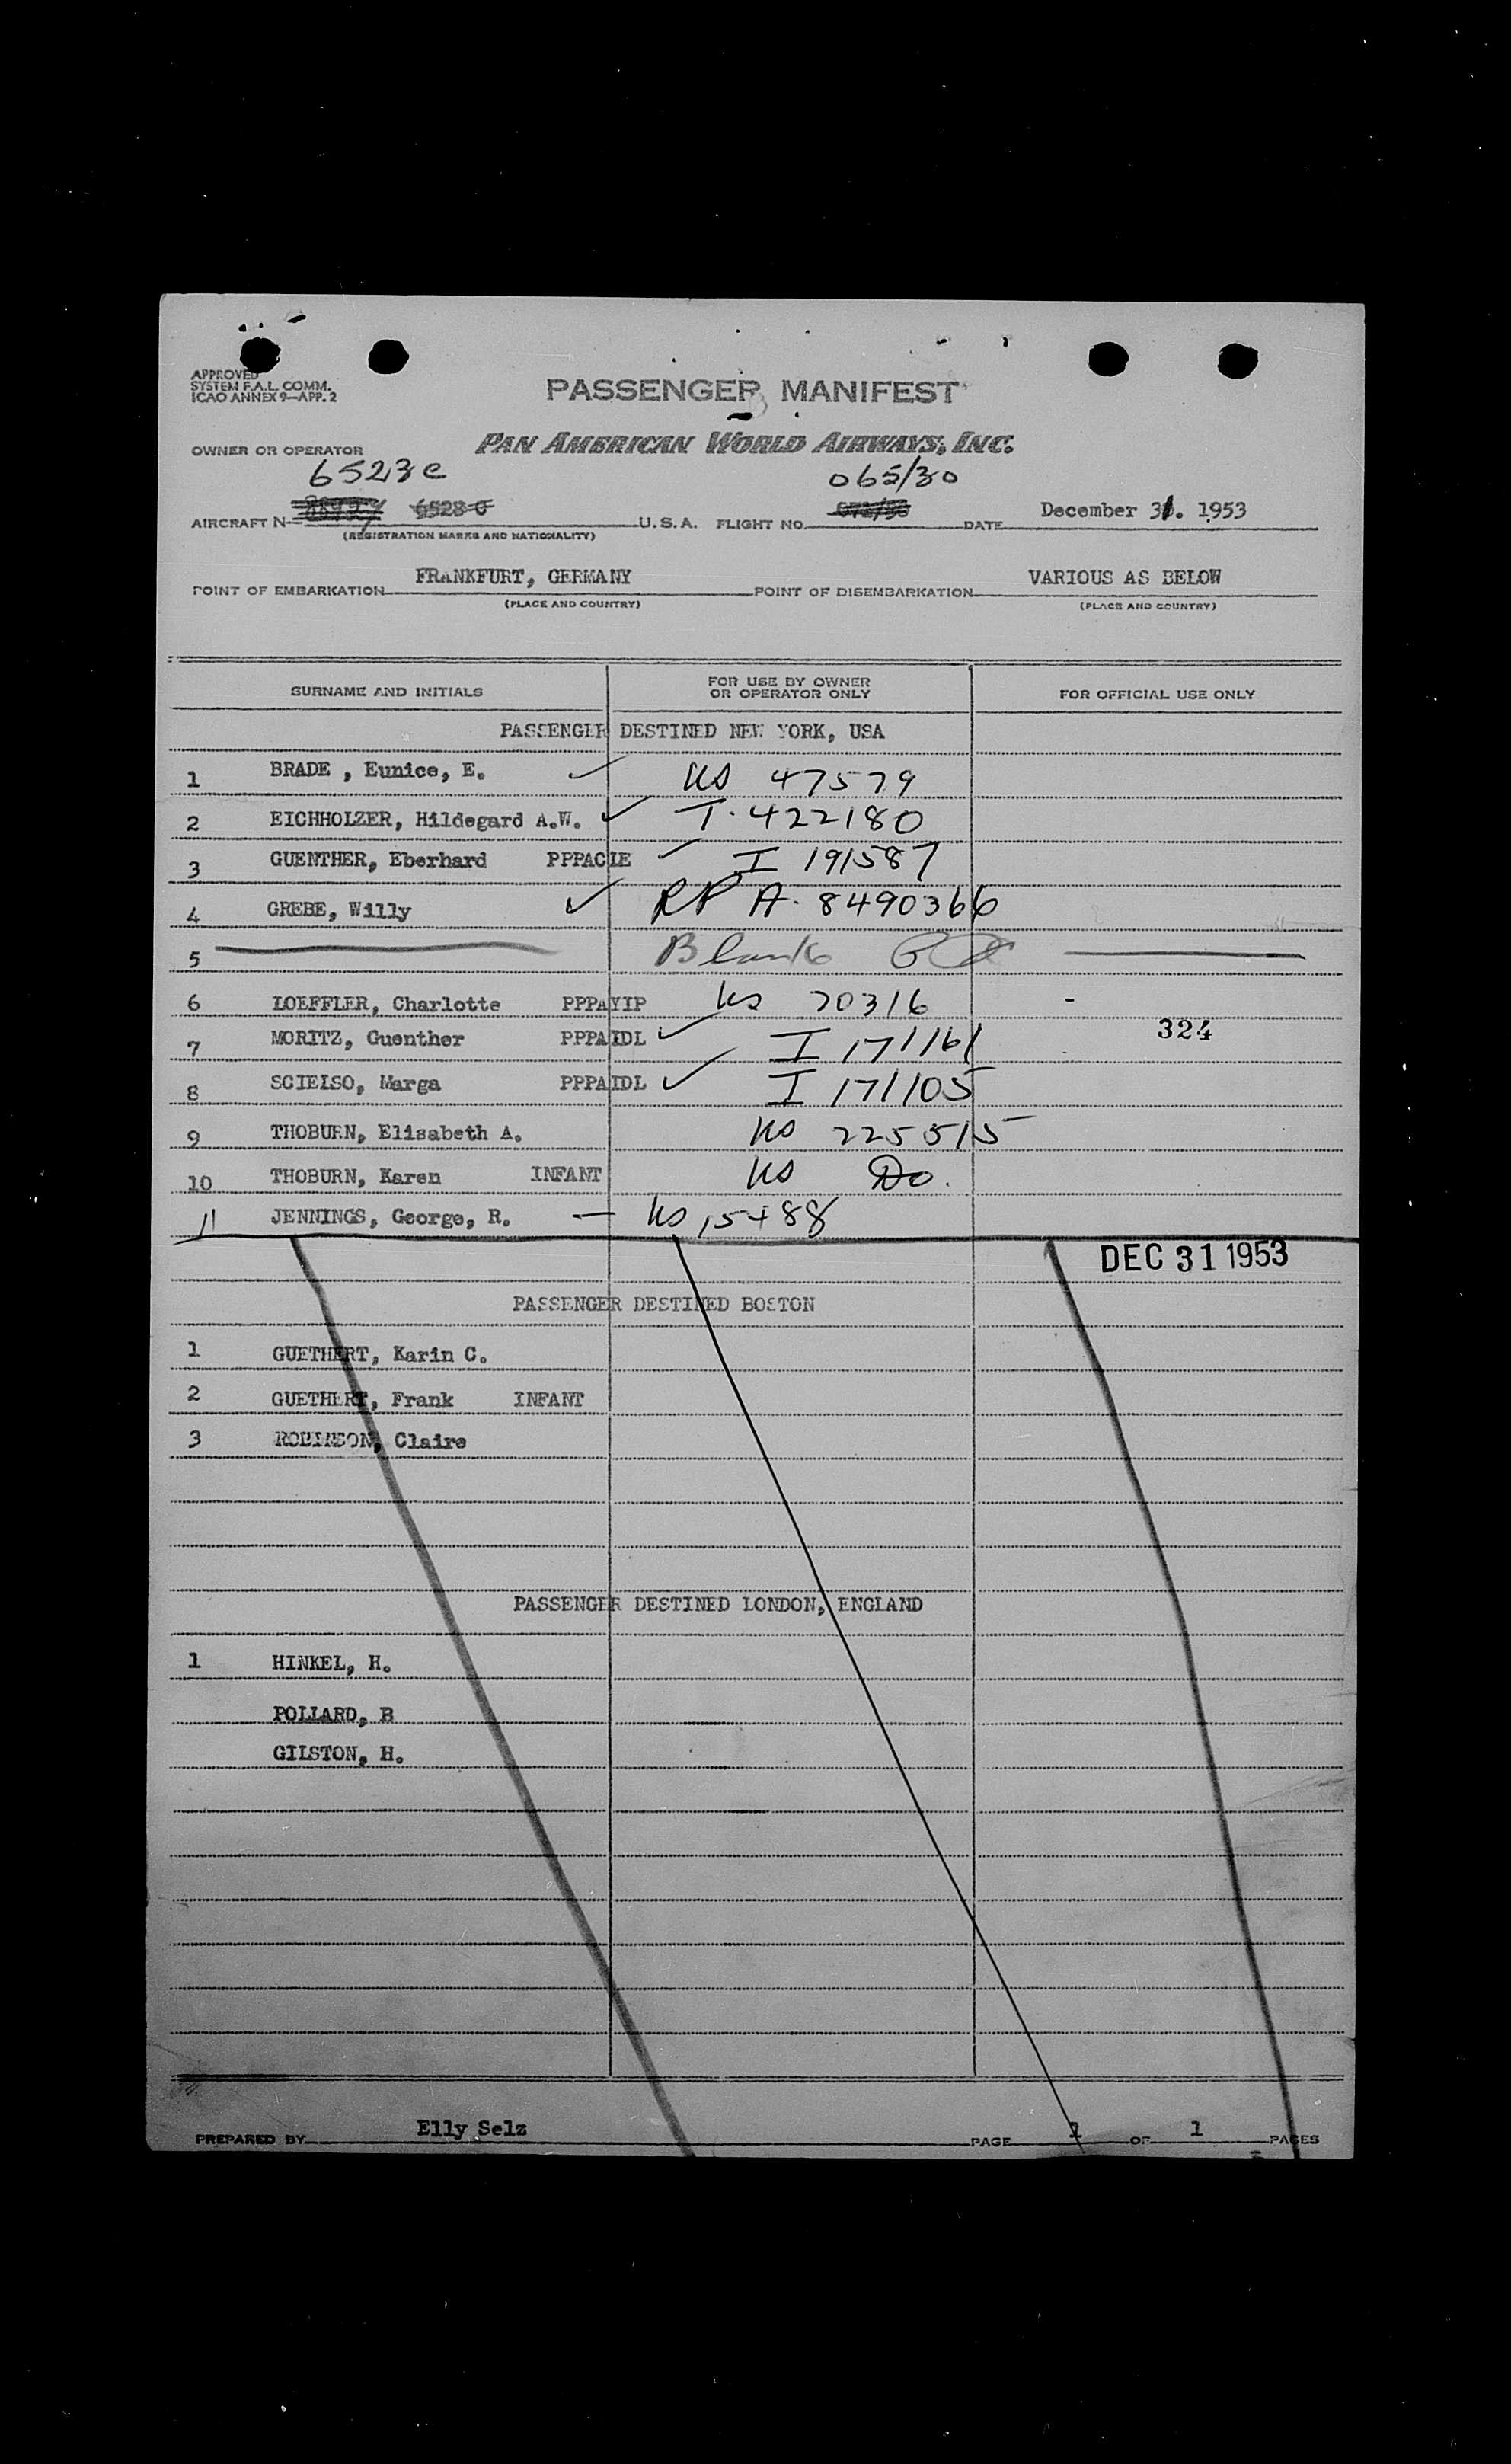 APPROVED
SYSTEM F.A.L. COMM.
ICAO ANNEX 9—APP. 2
PASSENGER MANIFEST
OWNER OR OPERATOR PAN AMERICAN WORLD AIRWAYS, INC.
6523c 065/30
AIRCRAFT N 6528-C U.S.A. FLIGHT NO. DATE December 31. 1953
(REGISTRATION MARKS AND NATIONALITY)
POINT OF EMBARKATION FRANKFURT, GERMANY POINT OF DISEMBARKATION VARIOUS AS BELOW
(PLACE AND COUNTRY) (PLACE AND COUNTRY)
SURNAME AND INITIALS FOR USE BY OWNER OR OPERATOR ONLY FOR OFFICIAL USE ONLY
PASSENGER DESTINED NEW YORK, USA
1 BRADE , Eunice, E. ✓ US 47579
2 EICHHOLZER, Hildegard A.W. ✓ T. 422180
3 GUENTHER, Eberhard PPPACIE ✓ I 191587
4 GREBE, Willy ✓ RP A. 8490366
5 Blank
6 LOEFFLER, Charlotte PPPAYIP US 70316 -
7 MORITZ, Guenther PPPAIDL ✓ I 171161 324
8 SCIELSO, Marga PPPAIDL ✓ I 171105
9 THOBURN, Elisabeth A. US 225515
10 THOBURN, Karen INFANT US Do.
11 JENNINGS, George, R. — US 15488
DEC 31 1953
PASSENGER DESTINED BOSTON
1 GUETHERT, Karin C.
2 GUETHERT, Frank INFANT
3 ROBINSON, Claire
PASSENGER DESTINED LONDON, ENGLAND
1 HINKEL, H.
POLLARD, B
GILSTON, H.
PREPARED BY Elly Selz PAGE 1 OF 1 PAGES